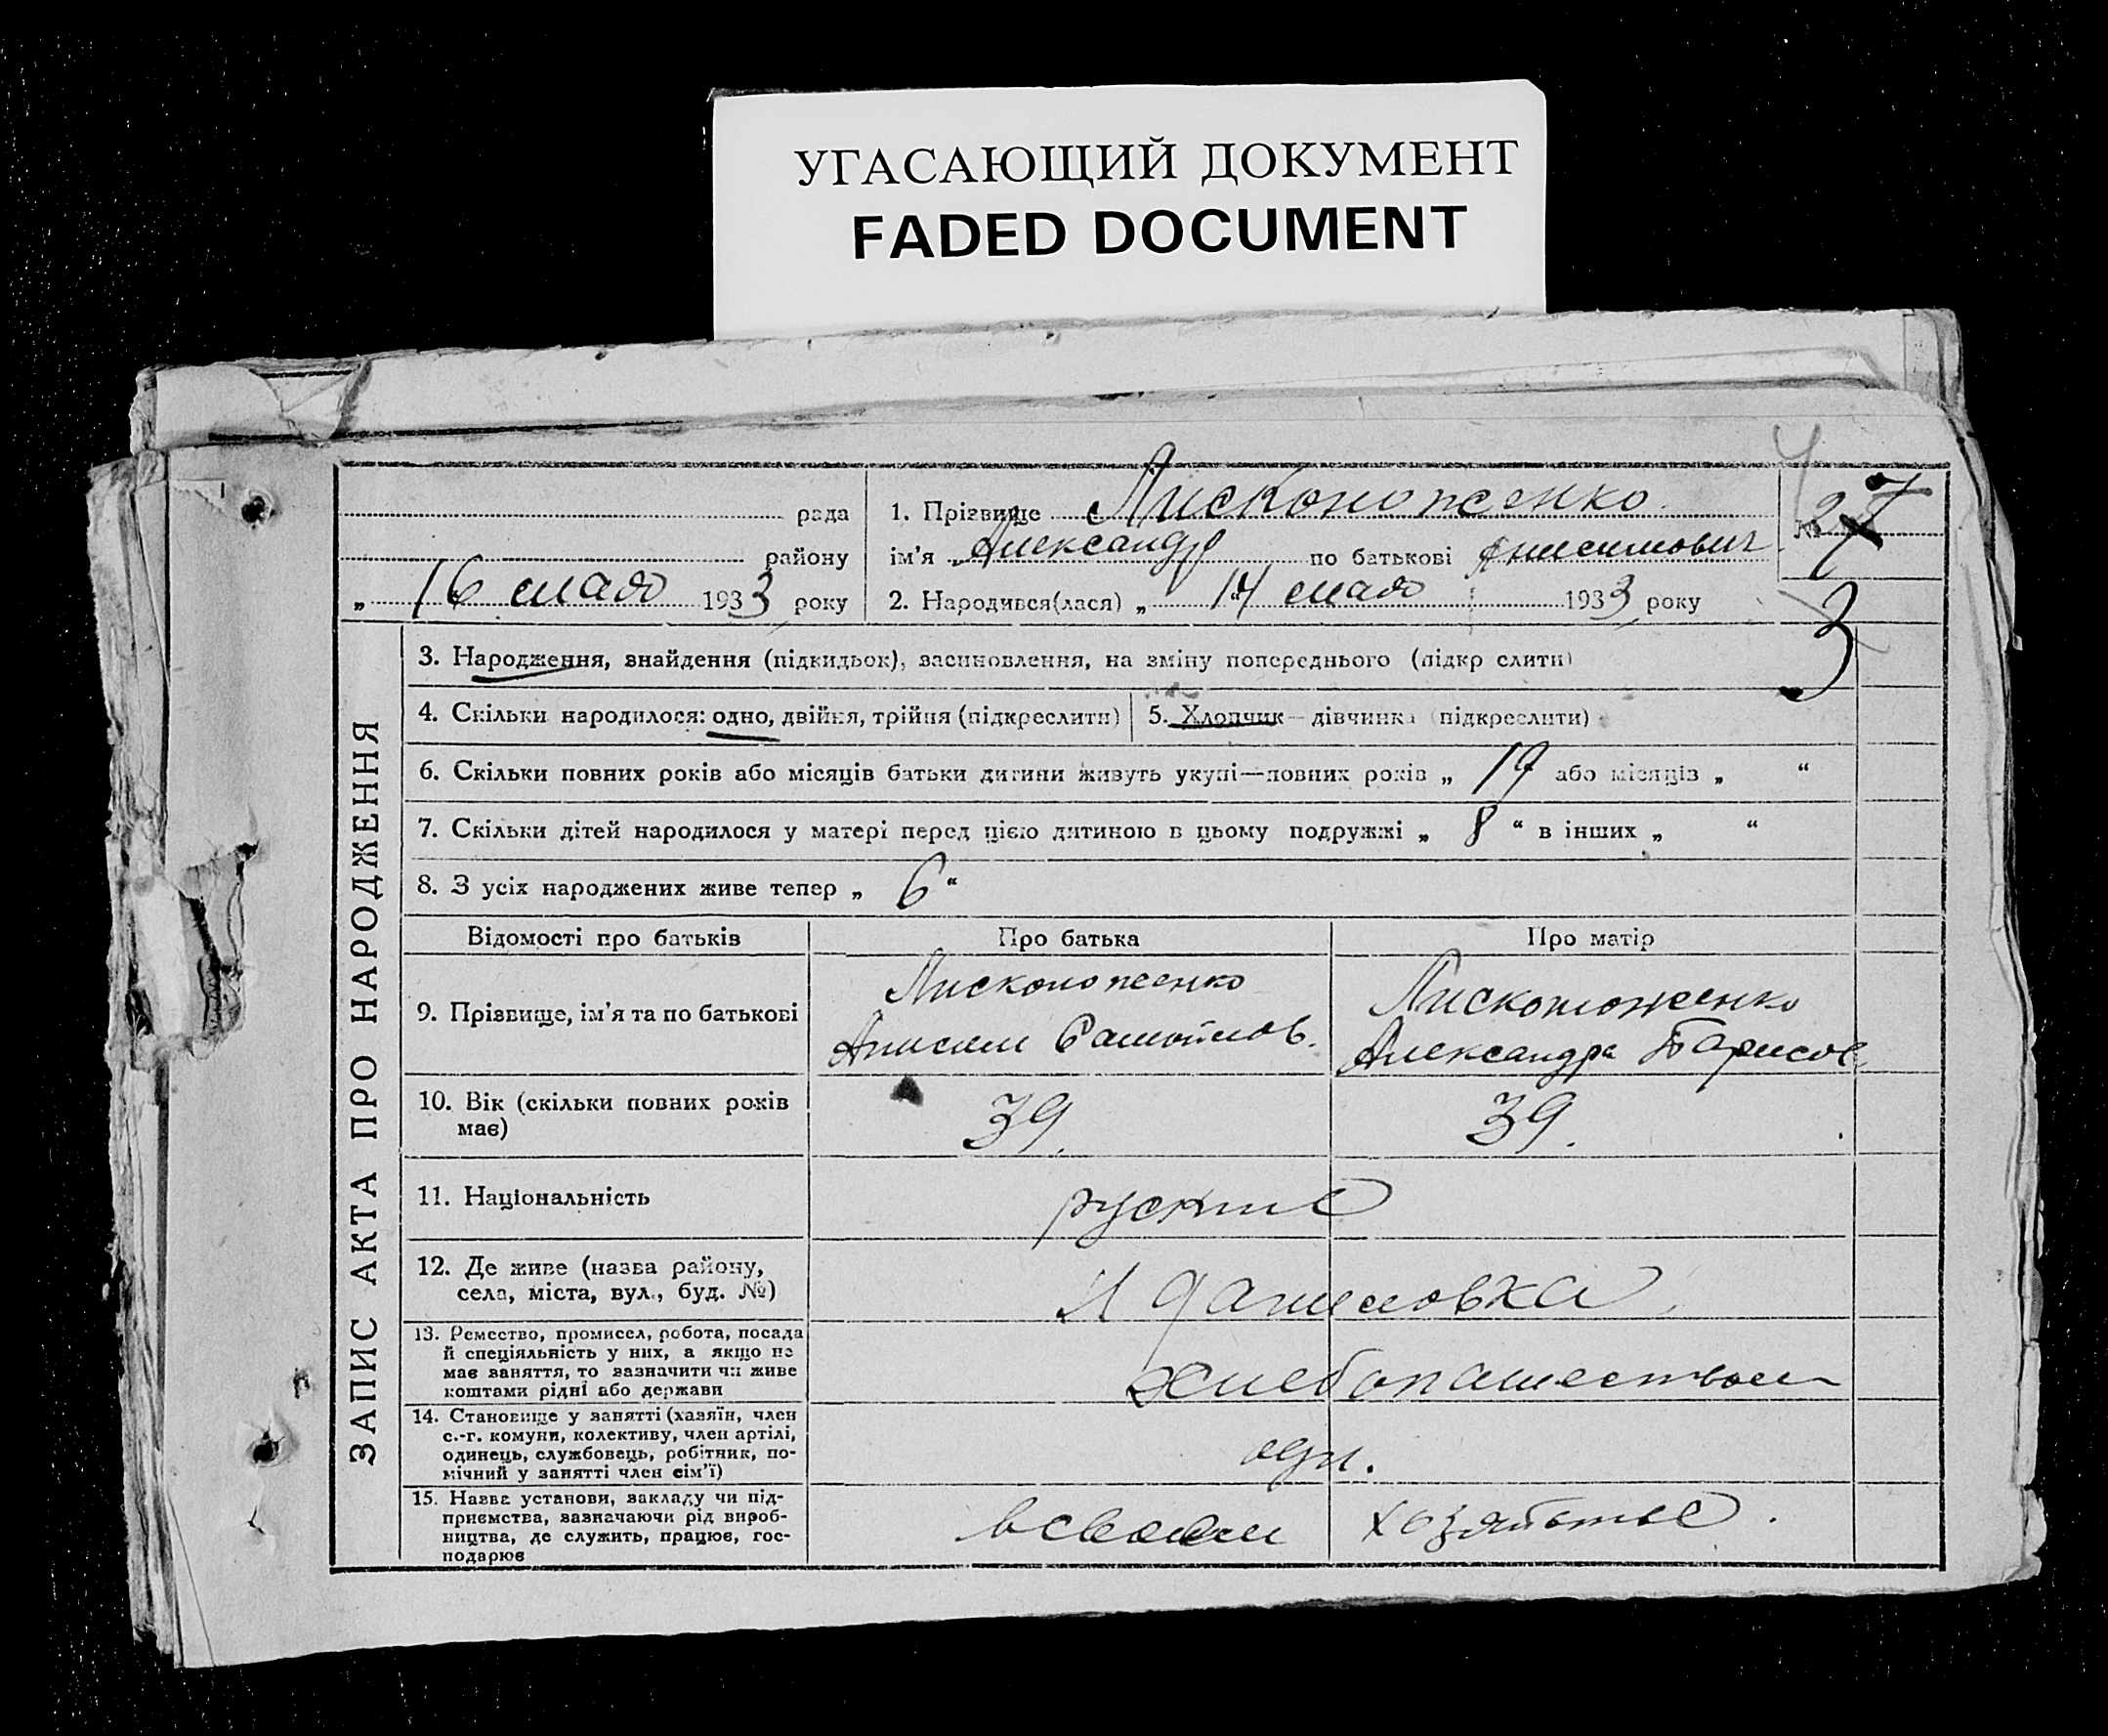 УГАСАЮЩИЙ ДОКУМЕНТ
FADED DOCUMENT
рада
району
„ 16 мая 1933 року
1. Прізвище Лисконоженко
ім'я Александр по батькові Анисимович
№
7
3
2. Народився(лася) „ 14 мая 1933 року
ЗАПИС АКТА ПРО НАРОДЖЕННЯ
3. Народження, знайдення (підкидьок), засиновлення, на зміну попереднього (підкр слити)
4. Скільки народилося: одно, двійня, трійня (підкреслити)
5. Хлопчик — дівчинка (підкреслити)
6. Скільки повних років або місяців батьки дитини живуть укупі—повних років „ 19 або місяців „ “
7. Скільки дітей народилося у матері перед цією дитиною в цьому подружжі „ 8 “ в інших „ “
8. З усіх народжених живе тепер „ 6 “
Відомості про батьків
Про батька
Про матір
9. Прізвище, ім'я та по батькові
Лисконоженко
Анисим
Лисконоженко
Александра Барисов
10. Вік (скільки повних років
має)
39.
39.
11. Національність
руские
12. Де живе (назва району,
села, міста, вул., буд. №)
Даниловка
13. Ремество, промисел, робота, посада
й спеціяльність у них, а якщо не
має заняття, то зазначити чи живе
коштами рідні або держави
хлебопашеством
14. Становище у занятті (хазяїн, член
с.-г. комуни, колективу, член артілі,
одинець, службовець, робітник, по-
мічний у занятті член сім'ї)
одн.
15. Назва установи, закладу чи під-
приємства, зазначаючи рід вироб-
ництва, де служить, працює, гос-
подарює
в своем хозяйстве.